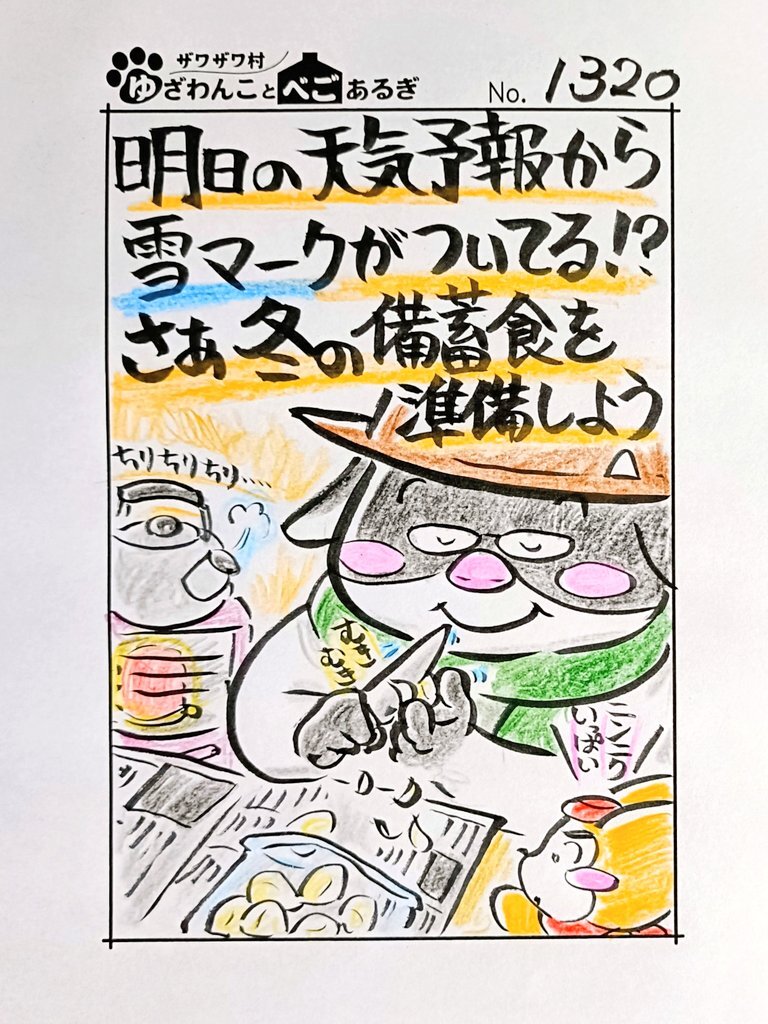 ザワザワ村
ゆざわんことべごあるぎ
No. 1320
明日の天気予報から
雪マークがついてる!?
さあ冬の備蓄食を
準備しよう
ちりちりちり....
むき
むき
ニンニク
いっぱい